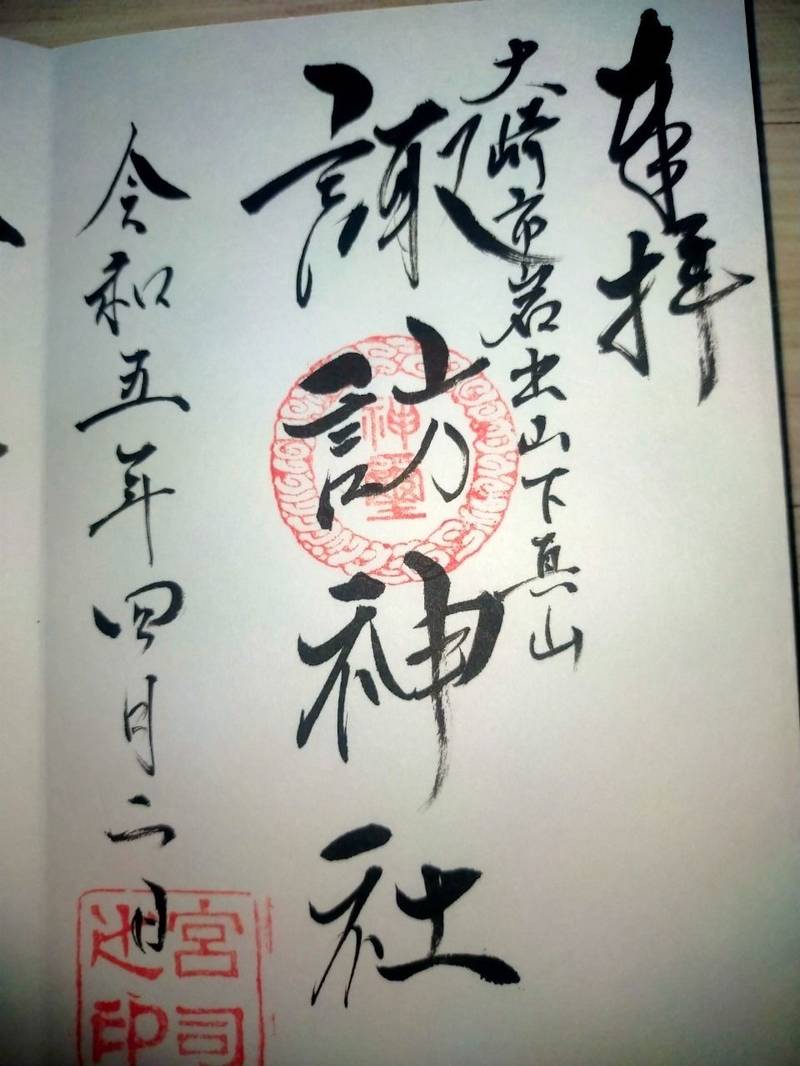 奉拝
大崎市岩出山下真山
諏訪神社
神璽
令和五年四月二日
宮司之印